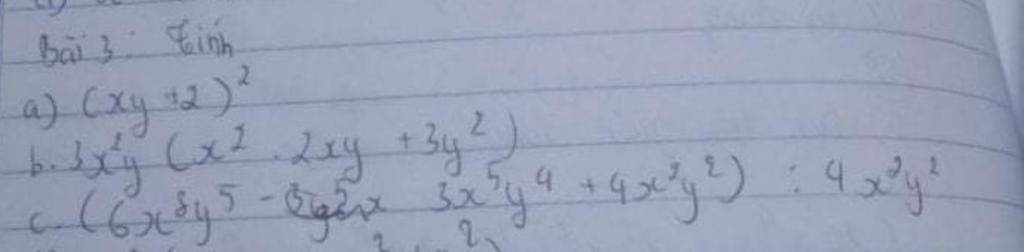 Bài 3: Tính
a) (xy + 2)²
b. 3x²y (x² . 2xy + 3y²)
c. (6x⁸y⁵ - 3x⁵y⁴ + 4x²y²) : 4x²y²